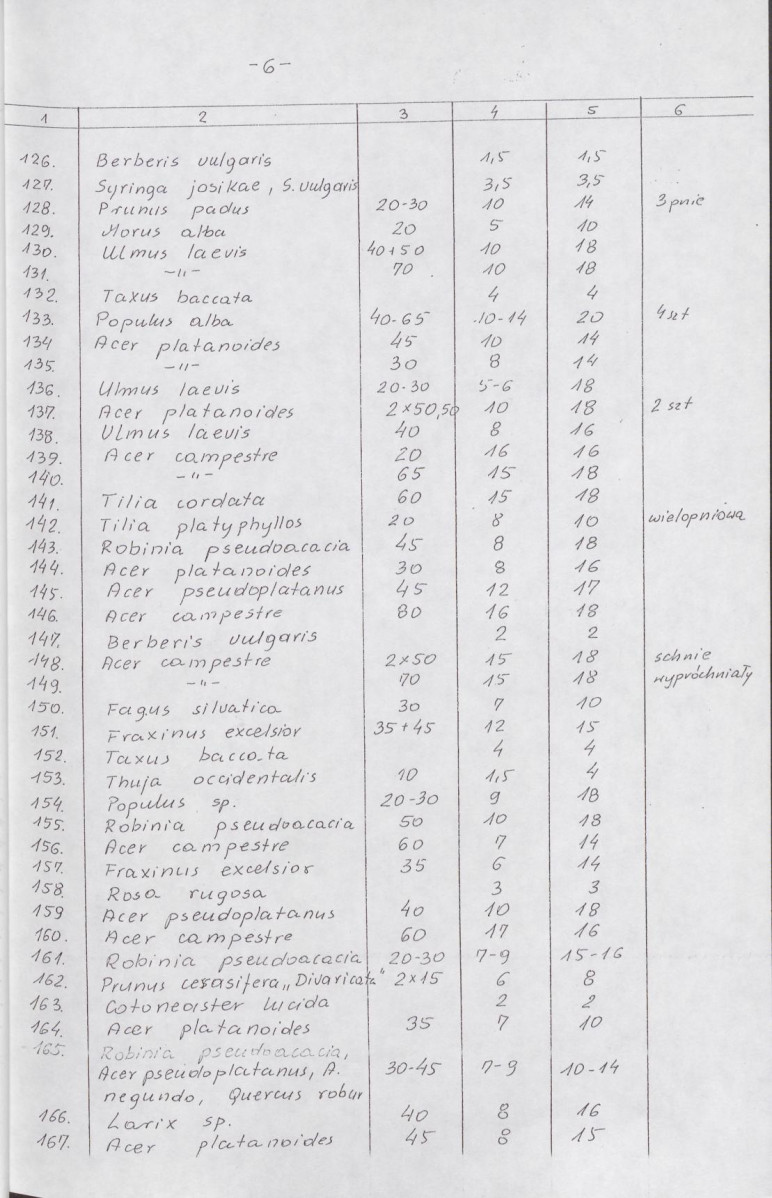 -6-
1 2 3 4 5 6
126. Berberis vulgaris 1,5 1,5
127. Syringa josikae, S. vulgaris 3,5 3,5
128. Prunus padus 20-30 10 14 3 pnie
129. Morus alba 20 5 10
130. Ulmus laevis 40+50 10 18
131. -"- 70 10 18
132. Taxus baccata 4 4
133. Populus alba 40-65 10-14 20 4 szt
134 Acer platanoides 45 10 14
135. -"- 30 8 14
136. Ulmus laevis 20-30 5-6 18
137. Acer platanoides 2×50,50 10 18 2 szt
138. Ulmus laevis 40 8 16
139. Acer campestre 20 16 16
140. -"- 65 15 18
141. Tilia cordata 60 15 18
142. Tilia platyphyllos 20 8 10 wielopniowa
143. Robinia pseudoacacia 45 8 18
144. Acer platanoides 30 8 16
145. Acer pseudoplatanus 45 12 17
146. Acer campestre 80 16 18
147. Berberis vulgaris 2 2
148. Acer campestre 2×50 15 18 schnie
149. -"- 70 15 18 wypróchniały
150. Fagus silvatica 30 7 10
151. Fraxinus excelsior 35+45 12 15
152. Taxus baccata 4 4
153. Thuja occidentalis 10 1,5 4
154. Populus sp. 20-30 9 18
155. Robinia pseudoacacia 50 10 18
156. Acer campestre 60 7 14
157. Fraxinus excelsior 35 6 14
158. Rosa rugosa 3 3
159 Acer pseudoplatanus 40 10 18
160. Acer campestre 60 17 16
161. Robinia pseudoacacia 20-30 7-9 15-16
162. Prunus cerasifera „Divaricata" 2×15 6 8
163. Cotoneaster lucida 2 2
164. Acer platanoides 35 7 10
165. Robinia pseudoacacia,
Acer pseudoplatanus, A. 30-45 7-9 10-14
negundo, Quercus robur
166. Larix sp. 40 8 16
167. Acer platanoides 45 8 15